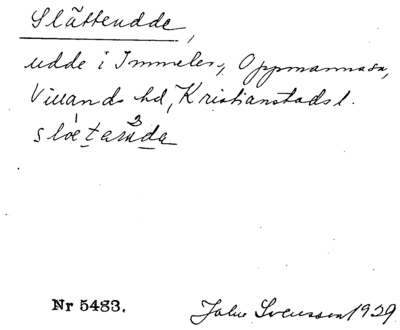 Slättendde,
udde i Immeln, Oppmanna sn,
Villands hd, Kristianstads l.
Nr 5483.
John Svensson 1929